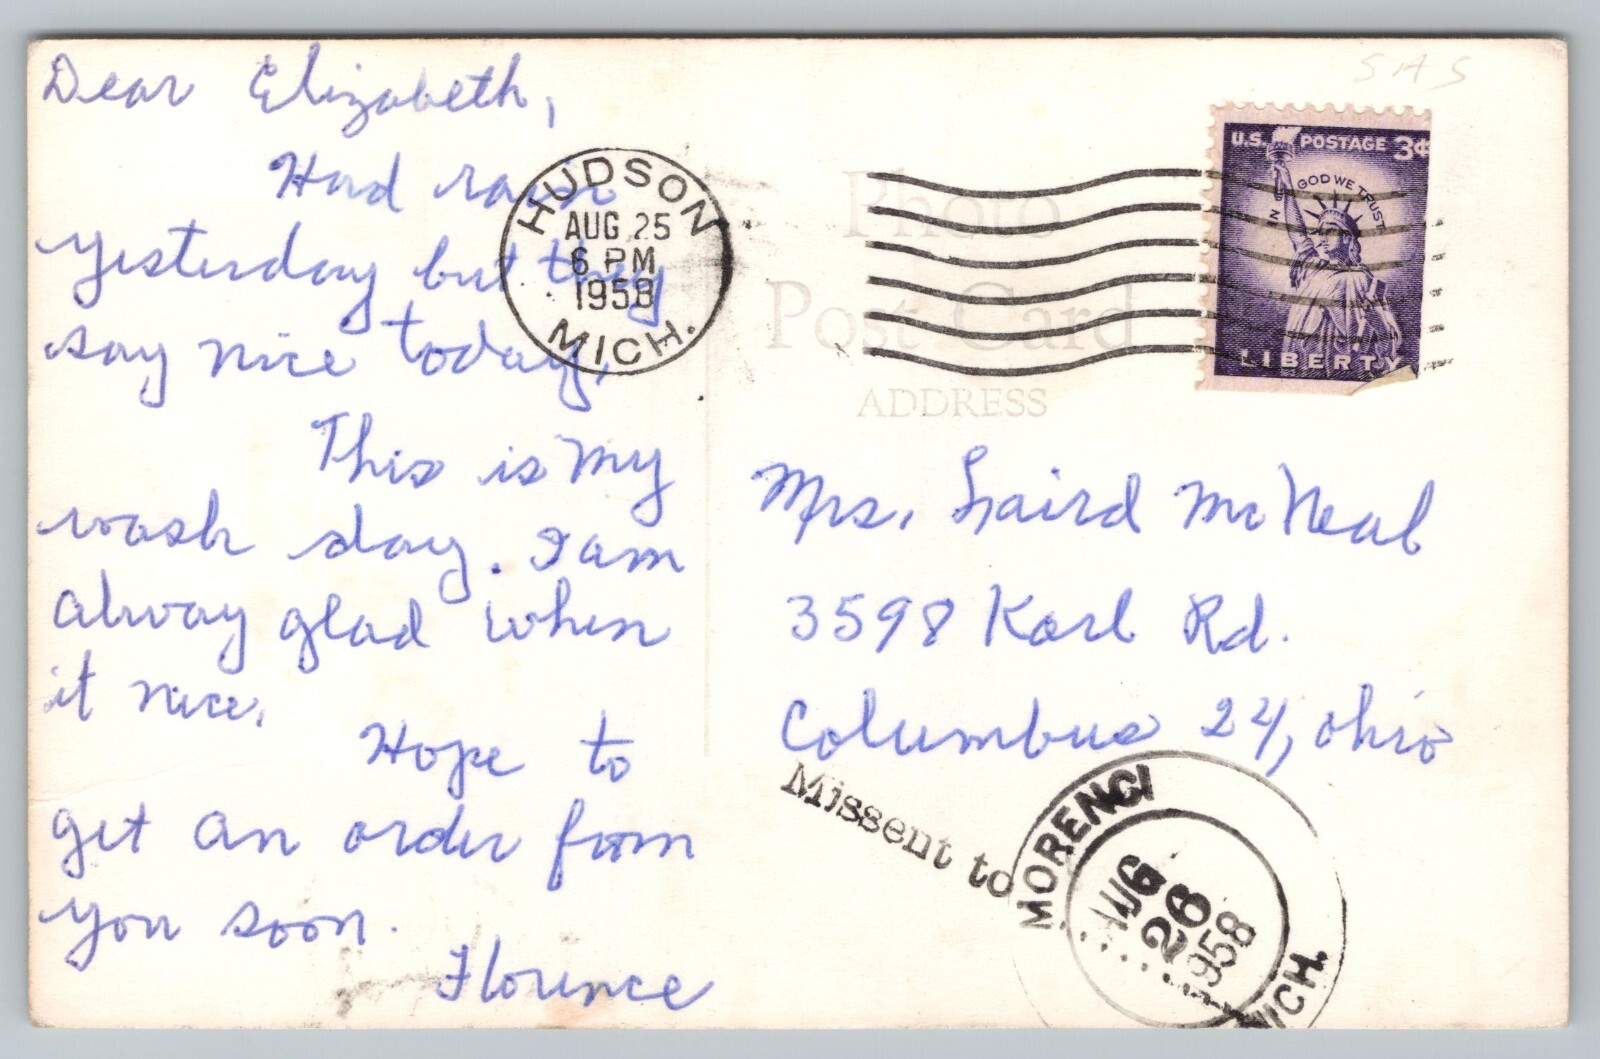 Dear Elizabeth,
Hard rain
yesterday but they
say nice today,
This is my
wash day. I am
alway glad when
it nice.
Hope to
get an order from
you soon.
Florence
SAS
HUDSON
AUG 25
6 PM
1958
MICH.
U.S. POSTAGE 3¢
IN GOD WE TRUST
LIBERTY
Photo
Post Card
ADDRESS
Mrs. Laird McNeal
3598 Karl Rd.
Columbus 24, Ohio
Missent to
MORENCI
AUG
26
1958
MICH.